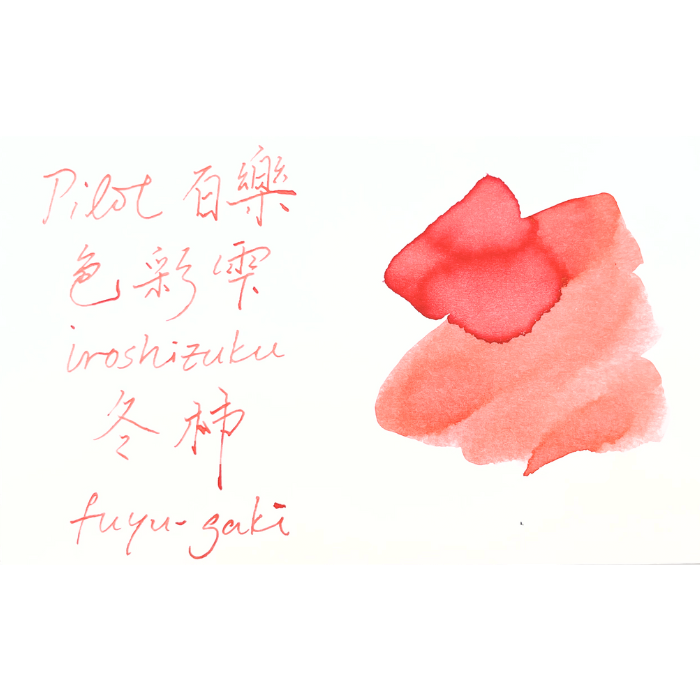 Pilot 百樂
色彩雫
iroshizuku
冬柿
fuyu-gaki